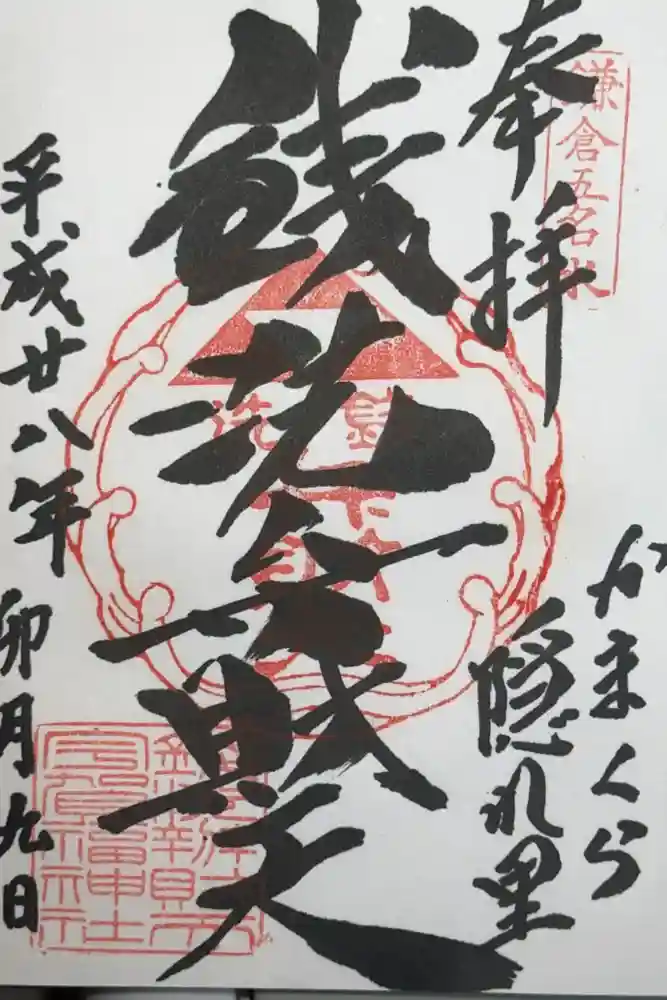 鎌倉五名水
奉拝
がまくら
隠れ里
銭洗弁財天
平成廿八年
卯月九日
銭洗弁財天
宇賀福神社